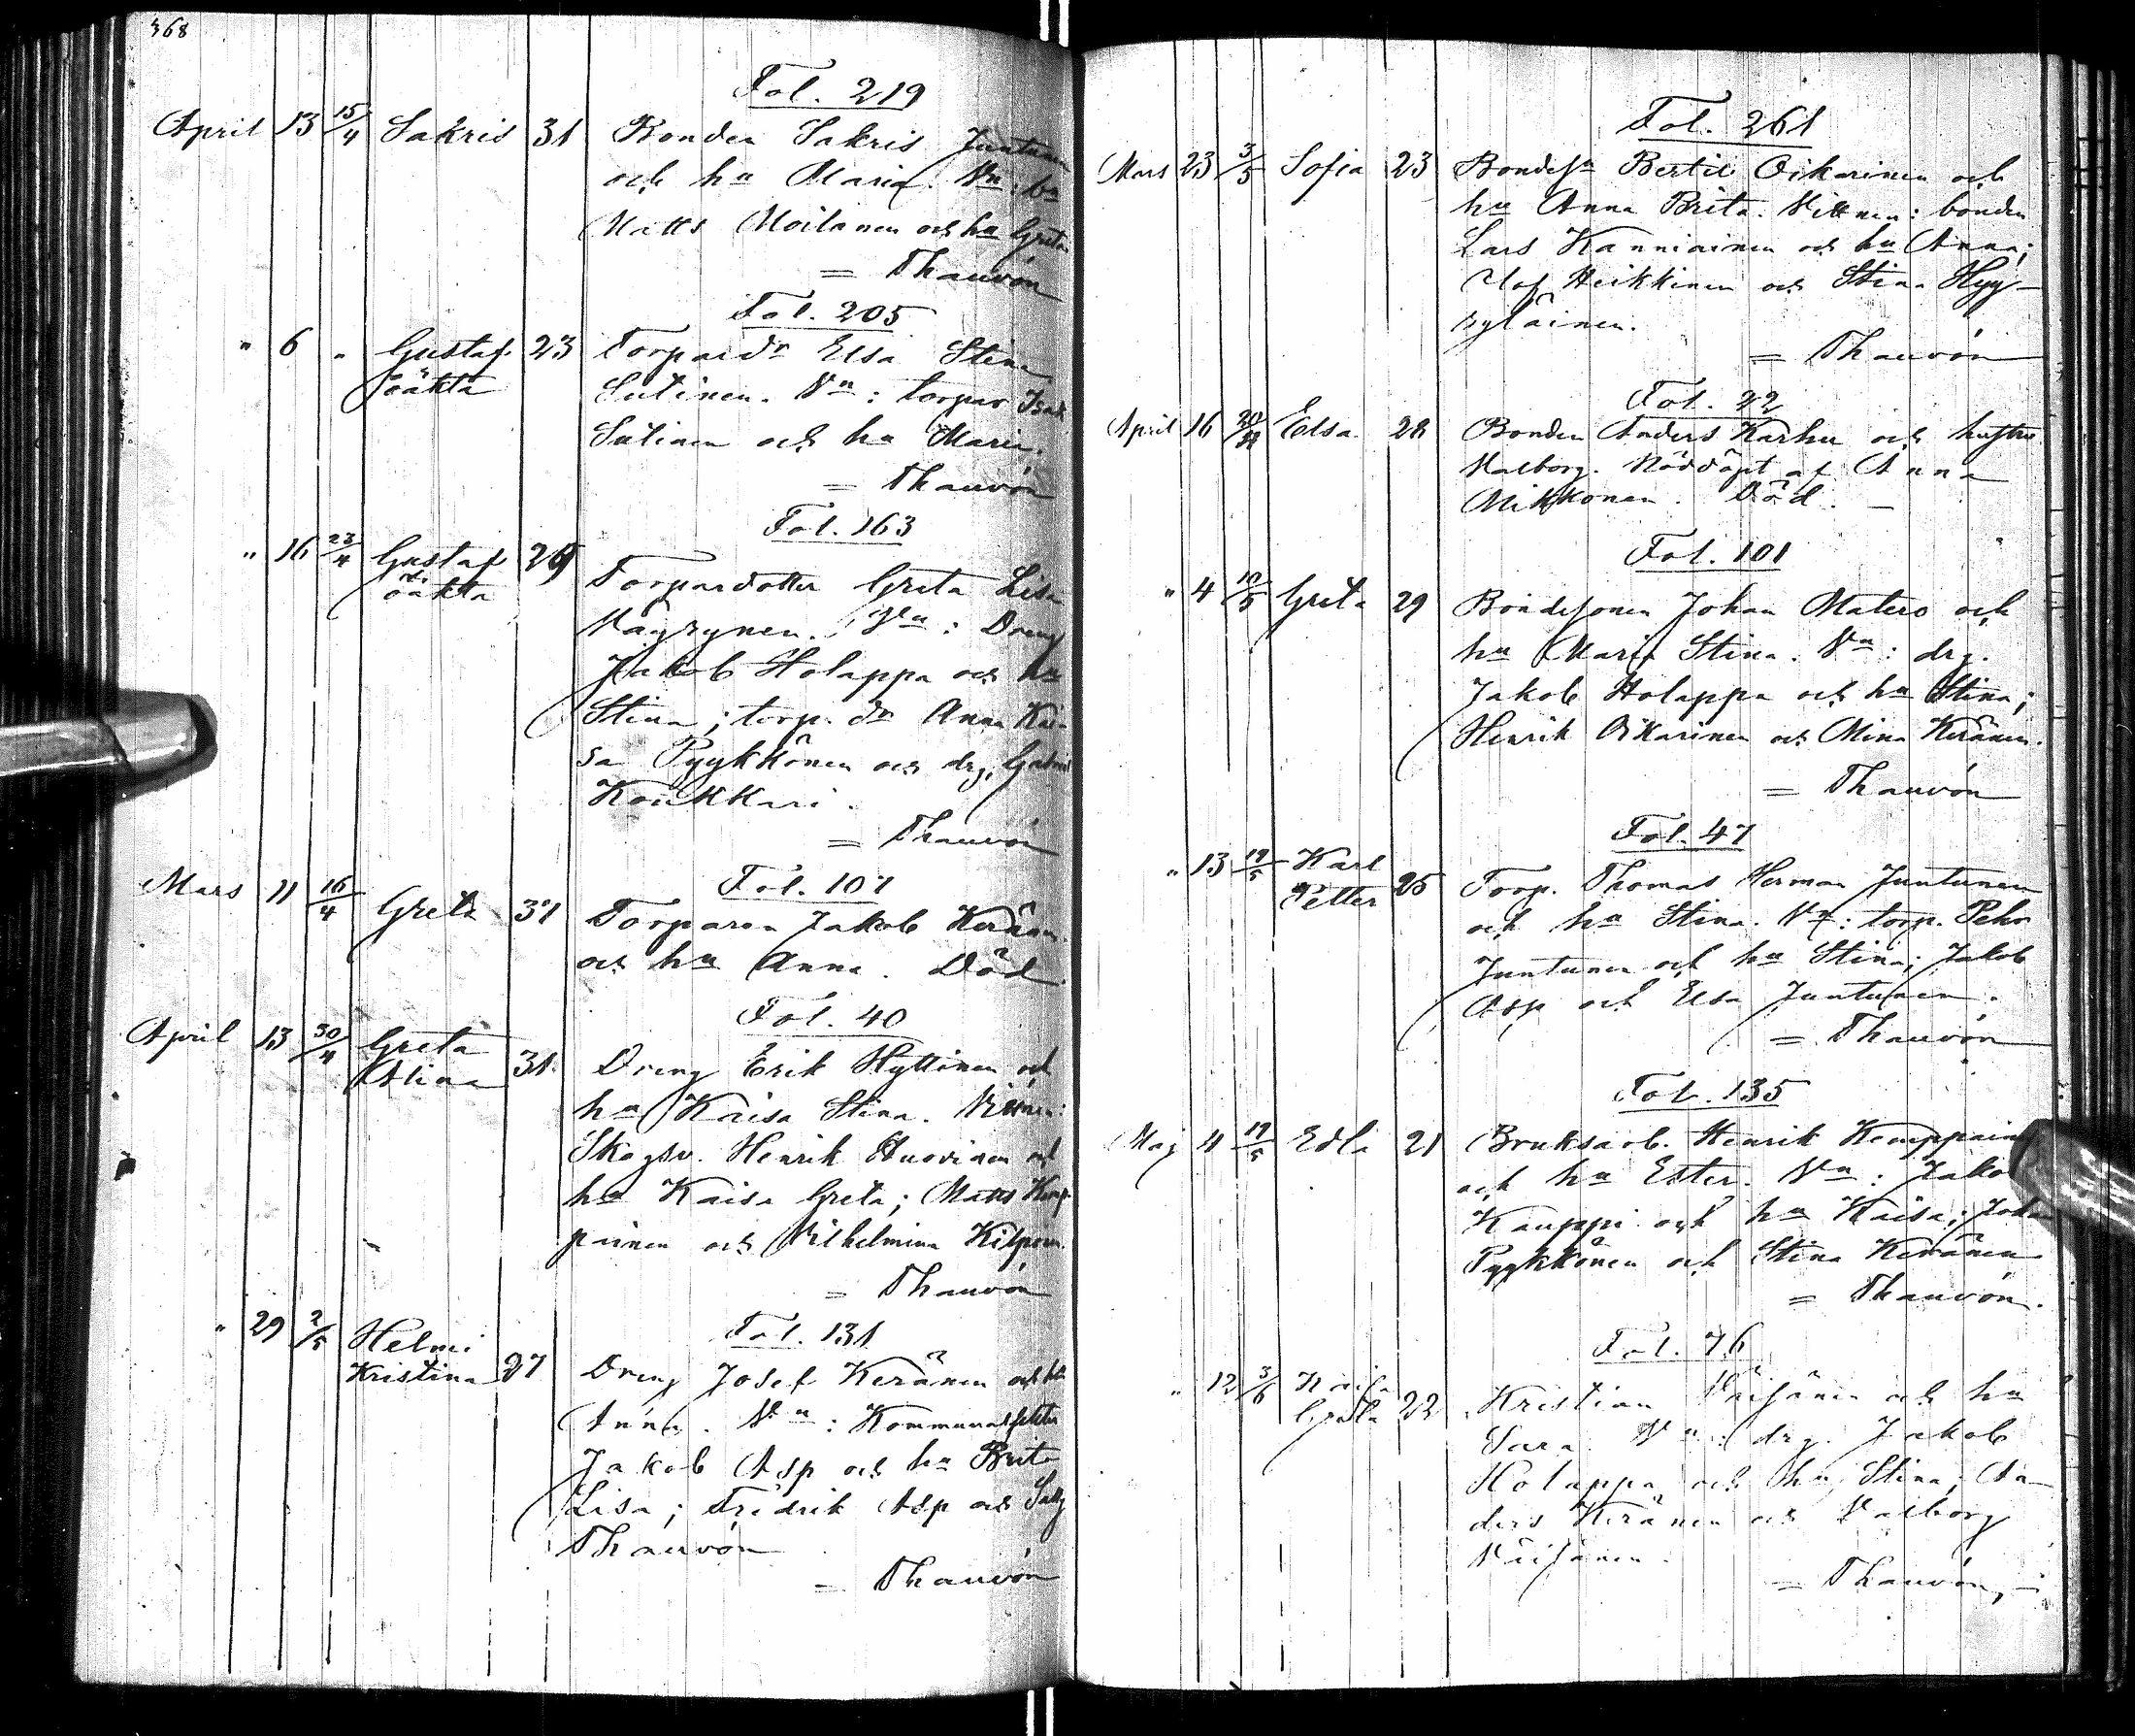 368
Fol. 219
April 13 15/4 Sakris 31 Bonden Sakris Juntunen
och hu Maria. Vn: bn
Matts Moilanen och hu Greta
= Thauvón
Fol. 205
" 6 " Gustaf 23 Torpardr Elsa Stina
oäkta Sutinen. Vn: torpar Isak
Sutinen och hu Maria.
= Thauvón
Fol. 163
" 16 23/4 Gustaf 29 Torpardotter Greta Lisa
oäkta Väyrynen. Vn: Dreng
Jakob Holappa och hu
Stina; torp. dr Anna Kai-
sa Pyykkönen och drg. Gabriel
Koukkari.
= Thauvón
Fol. 107
Mars 11 16/4 Greta 37 Torparen Jakob Keränen
och hu Anna. Död.
Fol. 40
April 13 30/4 Greta
Alina 31. Dreng Erik Hyttinen och
hu Kaisa Stina. Vittnen:
Skogsv. Henrik Huovinen och
hu Kaisa Greta; Matts Kemp-
painen och Vilhelmina Kilpein.
= Thauvón
Fol. 131
" 29 2/5 Helmi
Kristina 27 Dreng Josef Keränen och hu
Anna. Vn: Kommunal
Jakob Asp och hu Brita
Lisa; Fredrik Asp och Sally
Thauvón
= Thauvón
Fol. 261
Mars 23 3/5 Sofia 23 Bondesn Bertil Oikarinen och
hu Anna Brita. Vittnen: bonden
Lars Kanniainen och hu Anna;
Olof Heikkinen och Stina Hyy-
ryläinen.
= Thauvón
Fol. 22
April 16 20/4 Elsa 28 Bonden Anders Karhu och hustru
Valborg. Nöddöpt af Anna
Mikkonen. Död. —
Fol. 101
" 4 10/5 Greta 29 Bondesonen Johan Matero och
hu Maria Stina. Vn: drg.
Jakob Holappa och hu Stina;
Henrik Oikarinen och Mina Keränen.
= Thauvón
Fol. 47
" 13 17/5 Karl
Petter 25 Torp. Thomas Herman Juntunen
och hu Stina. Vn: torp. Pehr
Juntunen och hu Stina; Jakob
Asp och Elsa Juntunen.
= Thauvón
Fol. 135
Maj 4 17/5 Edla 21 Bruksarb. Henrik Kemppainen
och hu Ester. Vn: Jakob
Kauppi och hu Kaisa; Johan
Pyykkönen och Stina Keränen
= Thauvón.
Fol. 76
" 12 3/6 Kaisa
Greta 22 Kristian Väisänen och hu
Sara. Vn: drg. Jakob
Holappa och hu Stina; An-
ders Keränen och Valborg
Väisänen.
= Thauvón, —